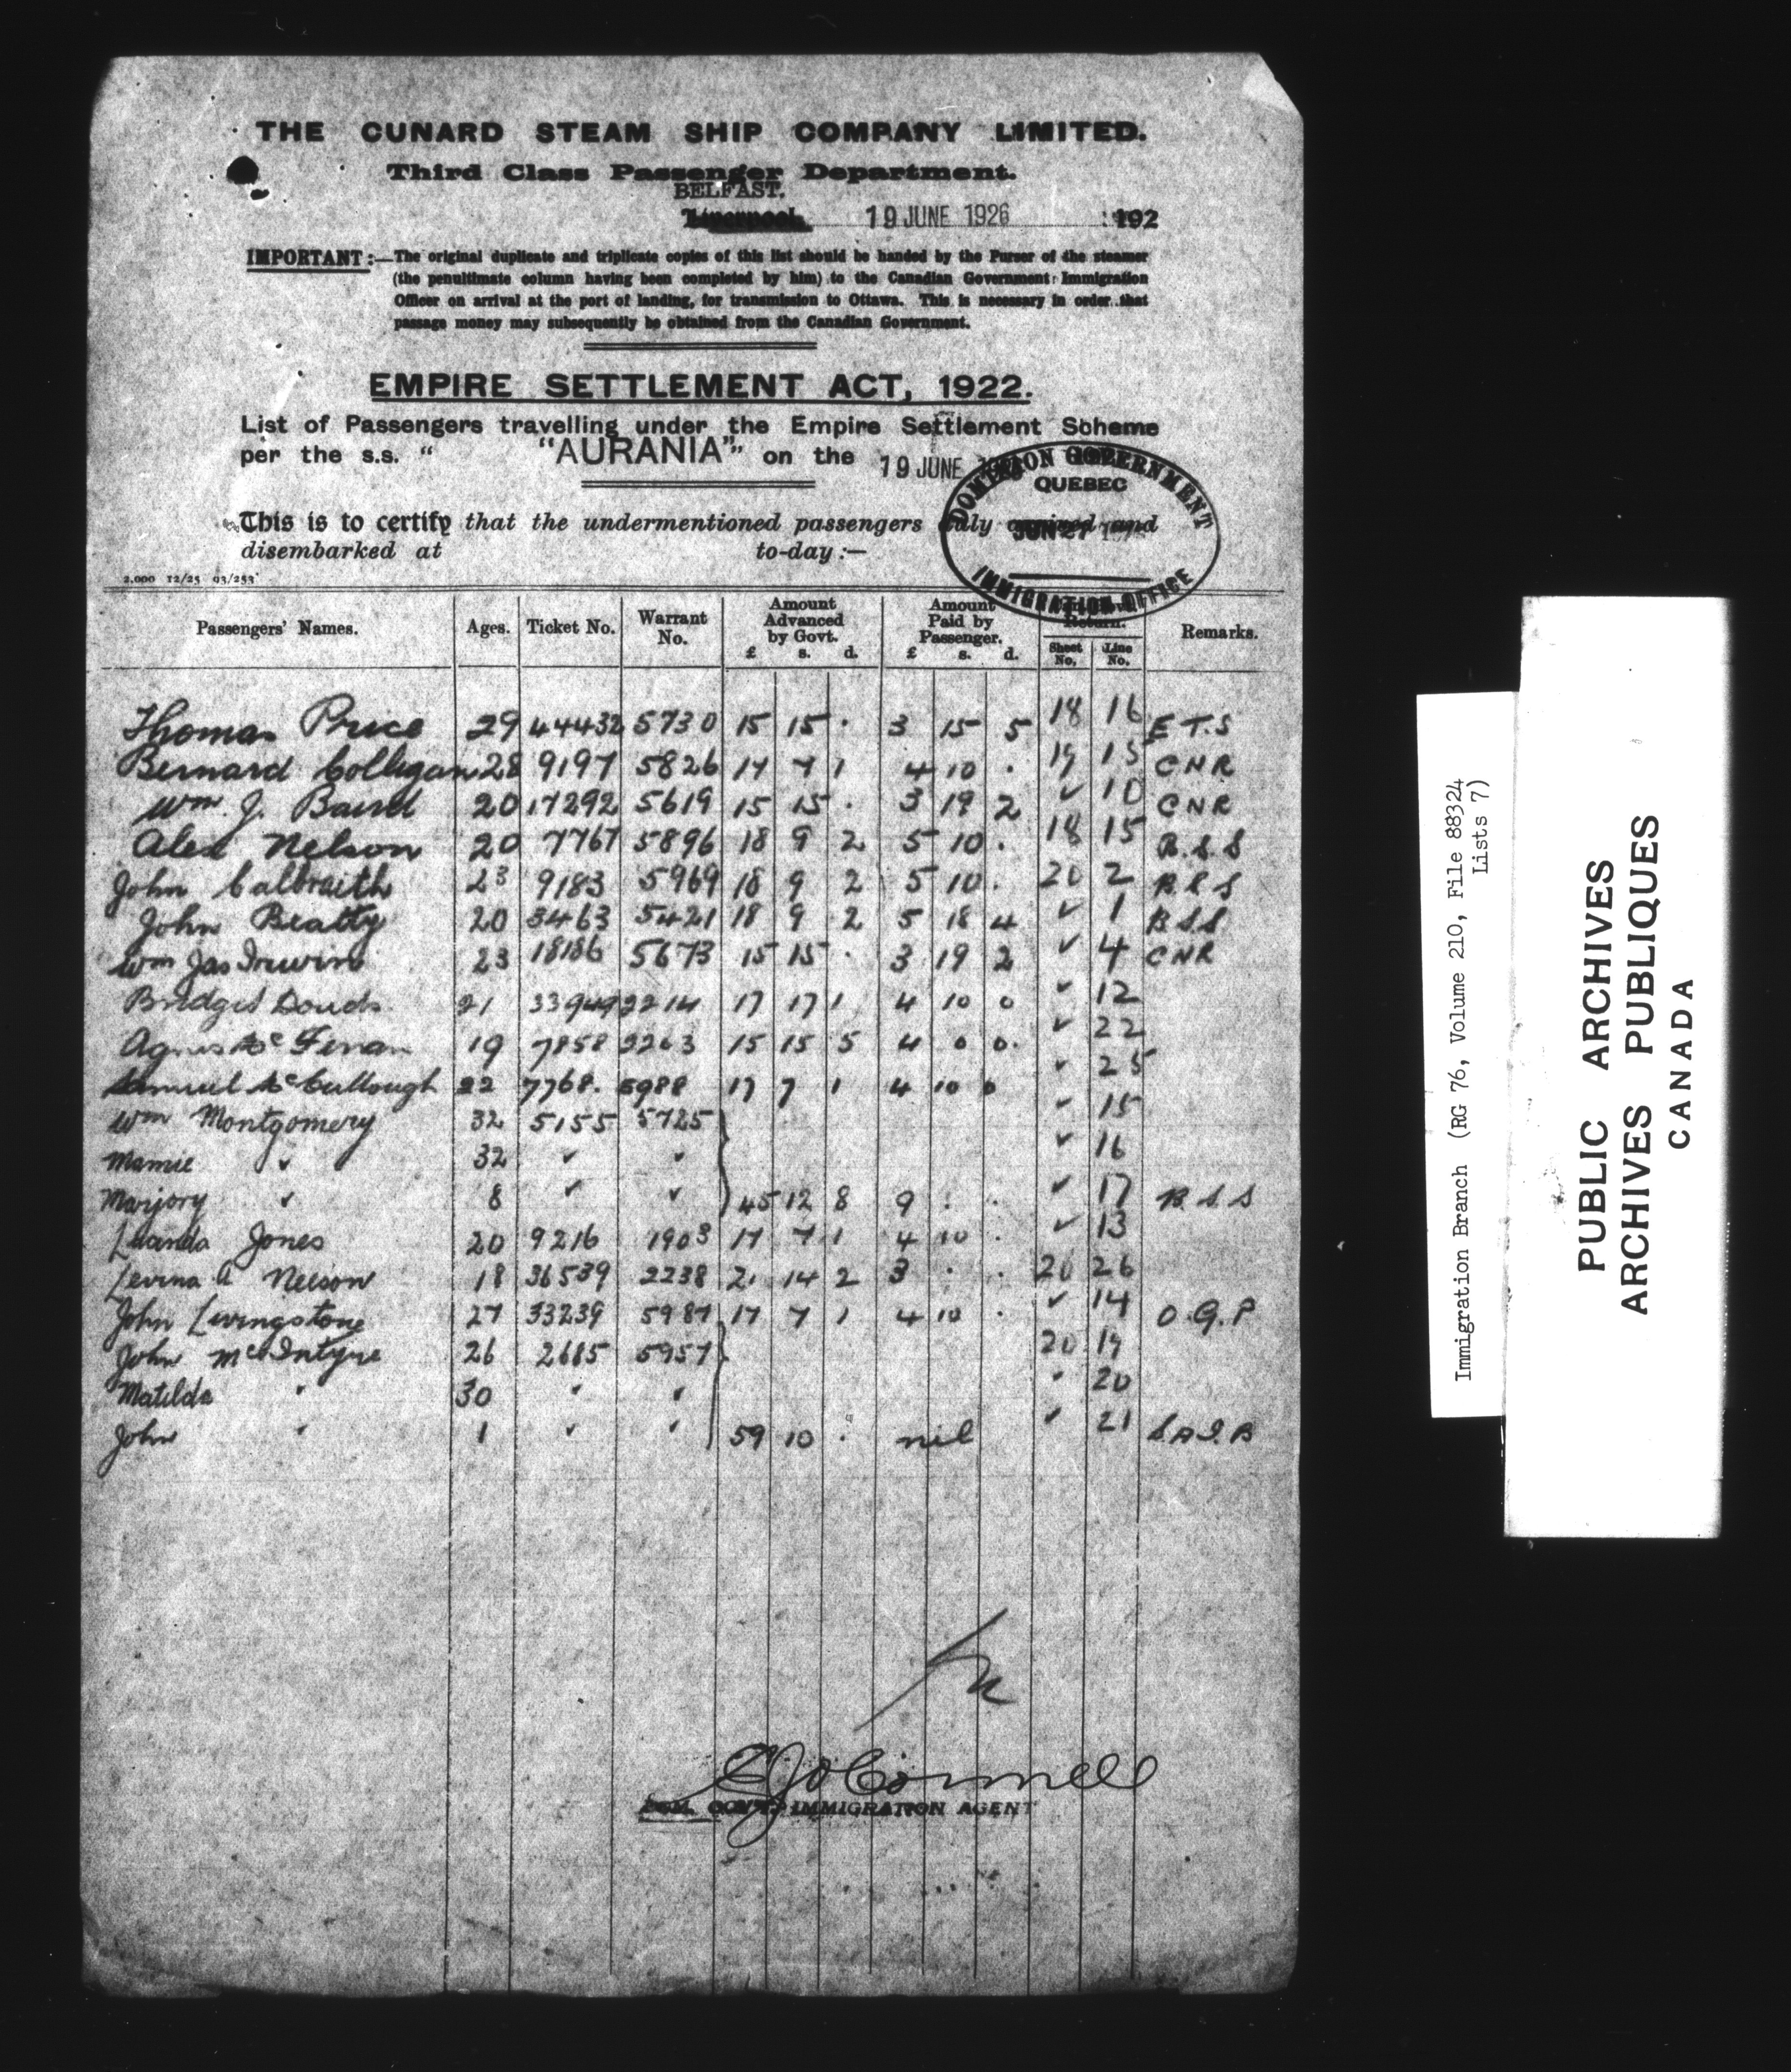 THE CUNARD STEAM SHIP COMPANY LIMITED.
Third Class Passenger Department.
BELFAST.
Liverpool, 19 JUNE 1926 192
IMPORTANT:—The original duplicate and triplicate copies of this list should be handed by the Purser of the steamer
(the penultimate column having been completed by him) to the Canadian Government Immigration
Officer on arrival at the port of landing, for transmission to Ottawa. This is necessary in order that
passage money may subsequently be obtained from the Canadian Government.
EMPIRE SETTLEMENT ACT, 1922.
List of Passengers travelling under the Empire Settlement Scheme
per the s.s. " "AURANIA" " on the 19 JUNE
DOMINION GOVERNMENT
QUEBEC
JUN 27
IMMIGRATION OFFICE
This is to certify that the undermentioned passengers duly arrived and
disembarked at to-day :—
2,000 12/25 93/253
Passengers' Names. Ages. Ticket No. Warrant No. Amount Advanced by Govt. £ s. d. Amount Paid by Passenger. £ s. d. Return. Sheet No. Line No. Remarks.
Thomas Price 29 44432 5730 15 15 . 3 15 5 18 16 E T.S
Bernard Colligan 28 9197 5826 17 7 1 4 10 . 19 15 CNR
Wm. J. Baird 20 17292 5619 15 15 . 3 19 2 ✓ 10 CNR
Alex Nelson 20 7767 5896 18 9 2 5 10 . 18 15 B.S.S
John Calbraith 23 9183 5969 18 9 2 5 10 . 20 2 B.S.S
John Beatty 20 3463 5421 18 9 2 5 18 4 ✓ 1 B.S.S
Wm Jas Irwin 23 18186 5673 15 15 . 3 19 2 ✓ 4 CNR
Bridget Douds 21 33949 2214 17 17 1 4 10 0 ✓ 12
Agnes Mc 19 7858 2263 15 15 5 4 0 0. ✓ 22
Samuel McCullough 22 7768. 5988 17 7 1 4 10 0 ✓ 25
Wm Montgomery 32 5155 5725 ✓ 15
Mamie ✓ 32 ✓ ✓ ✓ 16
Marjory ✓ 8 ✓ ✓ 45 12 8 9 . . ✓ 17 B.S.S
Jones 20 9216 1903 17 7 1 4 10 . ✓ 13
Levina A Nelson 18 36539 2238 21 14 2 3 . . 20 26
John Livingstone 27 33239 5987 17 7 1 4 10 . ✓ 14 O.G.P
John McIntyre 26 2685 5957 20 19
Matilda " 30 " " " 20
John " 1 " " 59 10 . nil ✓ 21 S A I B
DOM. GOVT. IMMIGRATION AGENT
Immigration Branch (RG 76, Volume 210, File 88324
Lists 7)
PUBLIC ARCHIVES
ARCHIVES PUBLIQUES
CANADA